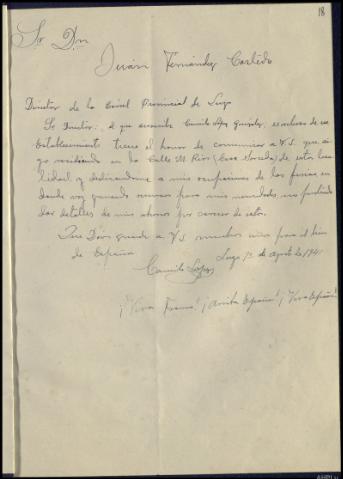 18
Sr. Dn
Juan Fernández Castedo
Director de la Cárcel Provincial de Lugo
Sr Director: el que suscribe Camilo López, exrecluso de ese
establecimiento tiene el honor de comunicar a V.S. que si-
go residiendo en la Calle M. Ríos (Casa) de esta loca-
lidad y dedicandome a mis ocupaciones de las ferias en
donde voy ganando para mis necesidades, no pudiendo
dar detalles de mis ahorros por carecer de estos.
Que Dios guarde a V.S. muchos años para el bien
de España
Lugo 1º de agosto de 1941
Camilo López
¡Viva Franco! ¡Arriba España! ¡Viva España!